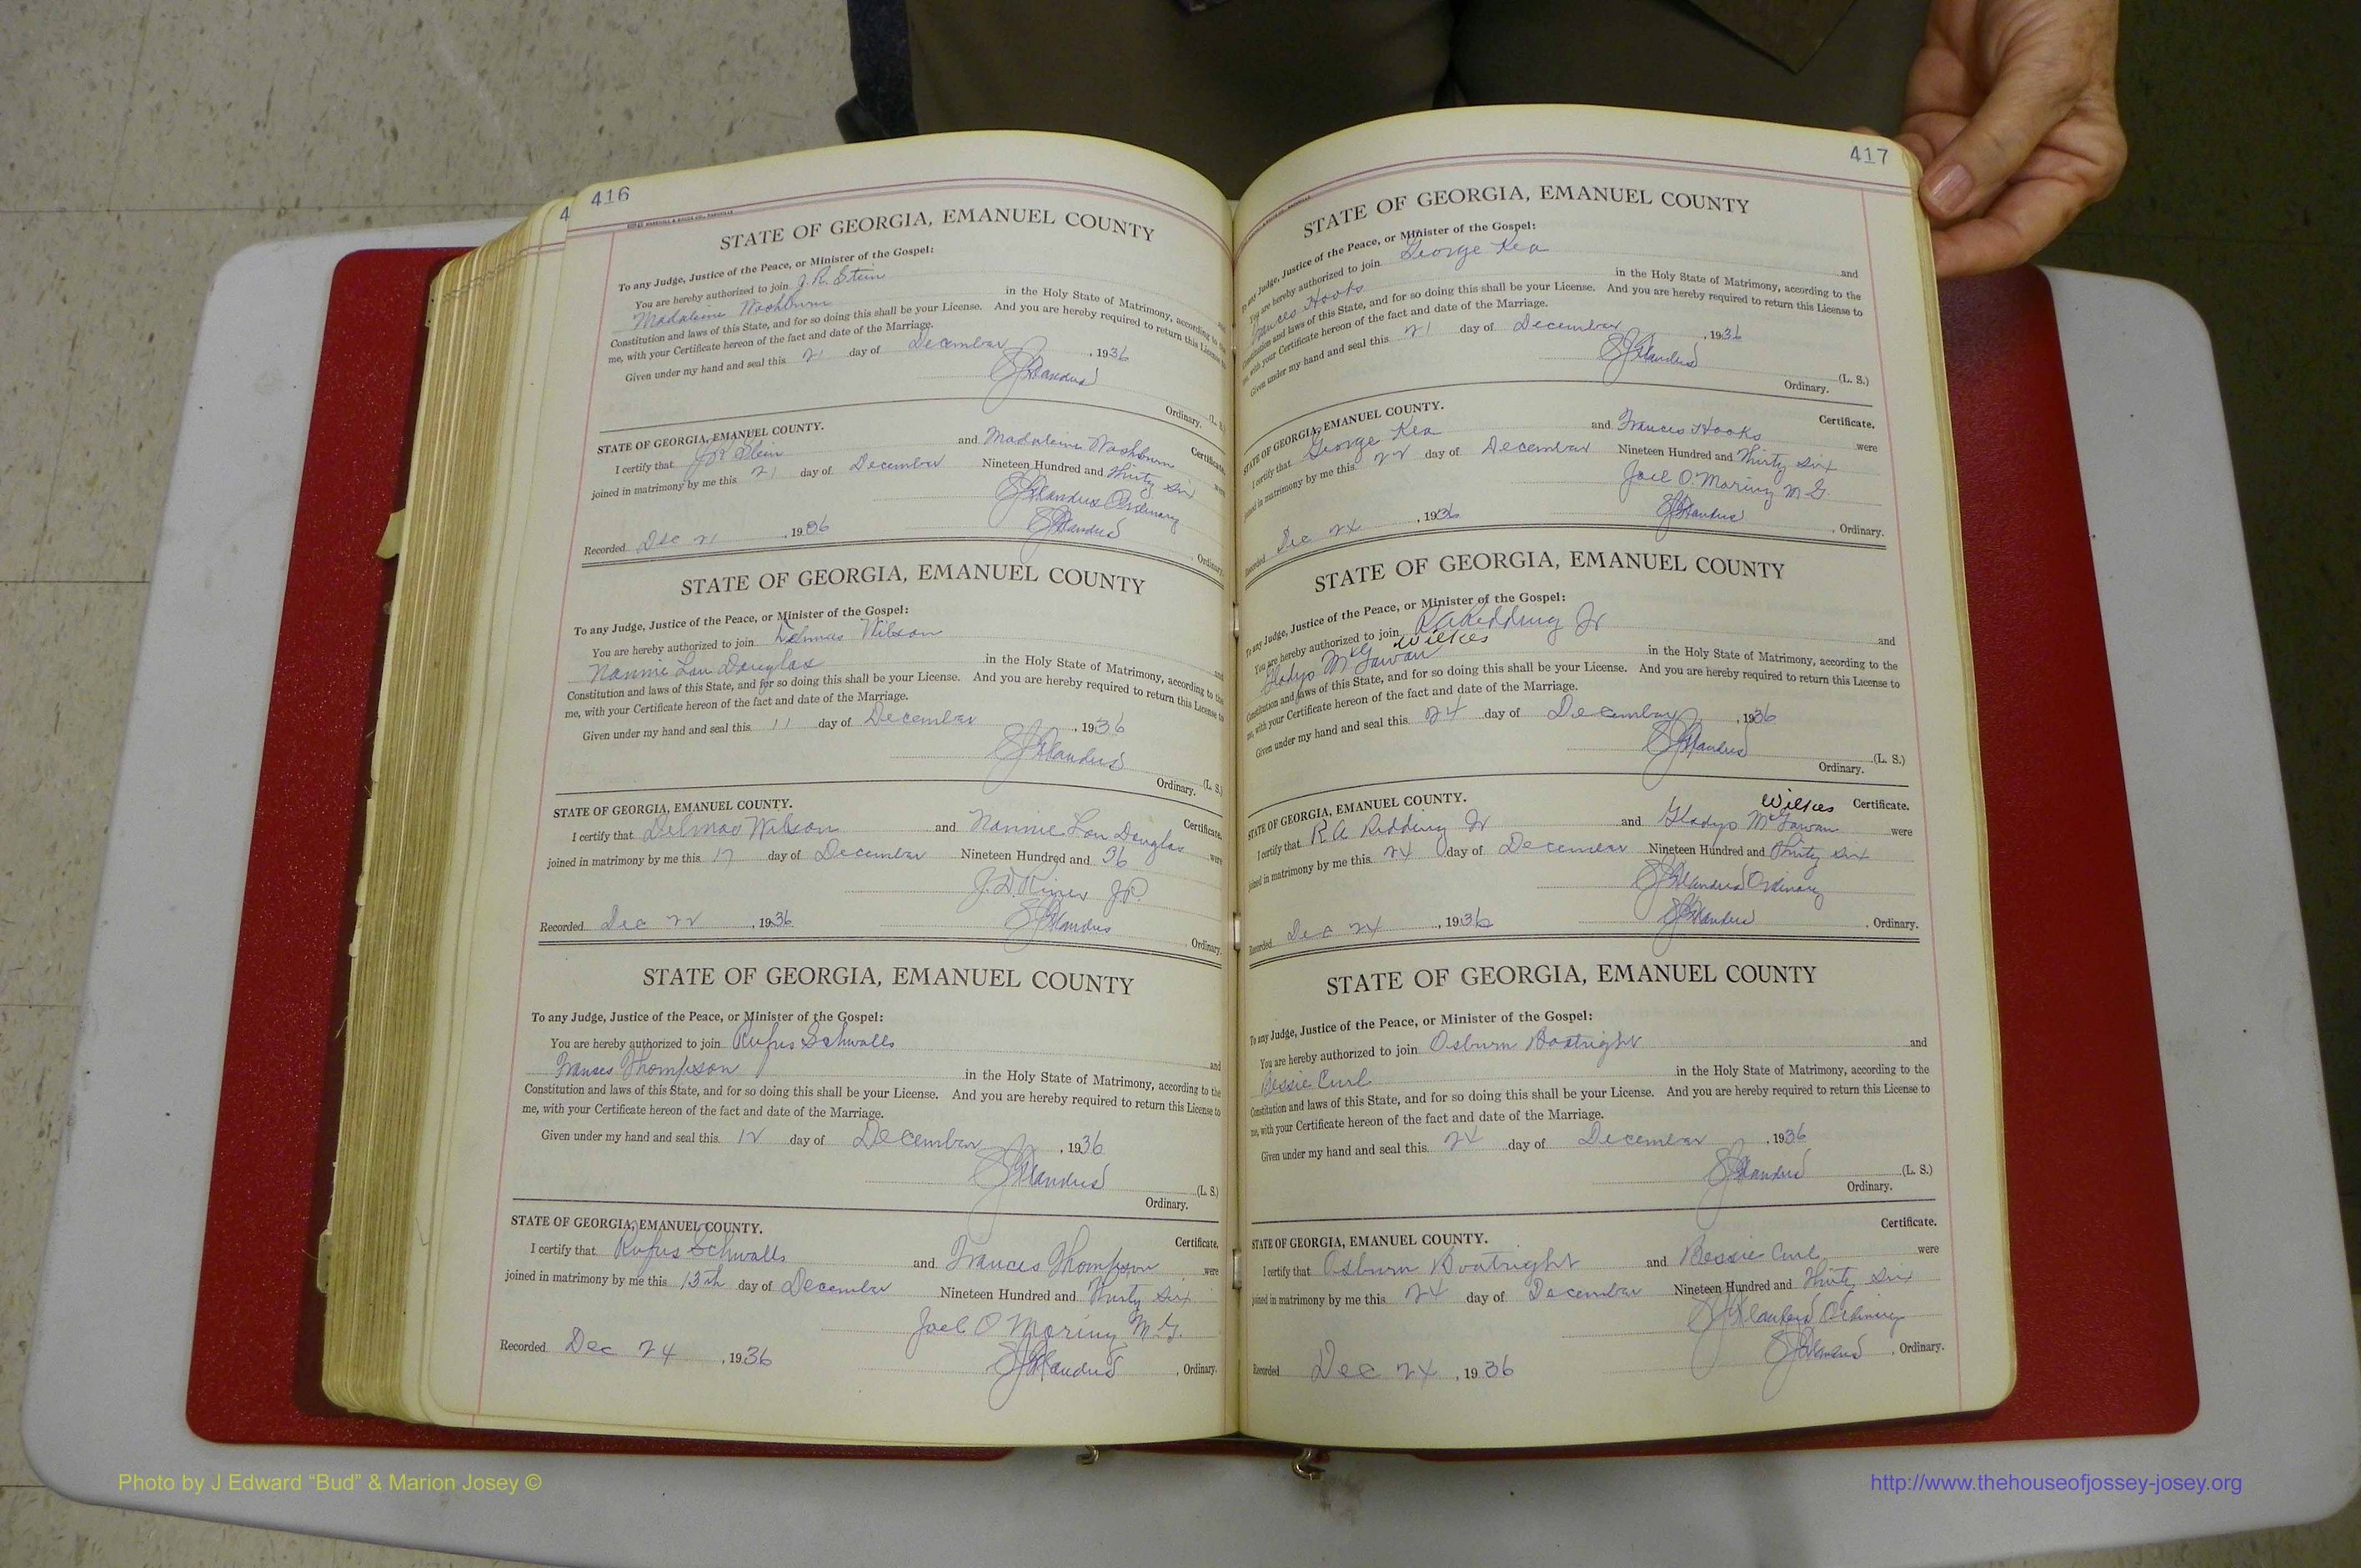 416
STATE OF GEORGIA, EMANUEL COUNTY
To any Judge, Justice of the Peace, or Minister of the Gospel:
You are hereby authorized to join J. R. Stein and
Madaleine Washburn in the Holy State of Matrimony, according to the
Constitution and laws of this State, and for so doing this shall be your License. And you are hereby required to return this License to
me, with your Certificate hereon of the fact and date of the Marriage.
Given under my hand and seal this 21 day of December, 1936
(L. S.)
Ordinary.
STATE OF GEORGIA, EMANUEL COUNTY. Certificate.
I certify that J R Stein and Madaleine Washburn were
joined in matrimony by me this 21 day of December Nineteen Hundred and Thirty Six
Ordinary
Recorded Dec 21, 1936 , Ordinary.
STATE OF GEORGIA, EMANUEL COUNTY
To any Judge, Justice of the Peace, or Minister of the Gospel:
You are hereby authorized to join Delmas Wilson and
Nannie Lou Douglas in the Holy State of Matrimony, according to the
Constitution and laws of this State, and for so doing this shall be your License. And you are hereby required to return this License to
me, with your Certificate hereon of the fact and date of the Marriage.
Given under my hand and seal this 11 day of December, 1936
(L. S.)
Ordinary.
STATE OF GEORGIA, EMANUEL COUNTY. Certificate.
I certify that Delmas Wilson and Nannie Lou Douglas were
joined in matrimony by me this 17 day of December Nineteen Hundred and 36
J. D. Riner J.P.
Recorded Dec 22, 1936 , Ordinary.
STATE OF GEORGIA, EMANUEL COUNTY
To any Judge, Justice of the Peace, or Minister of the Gospel:
You are hereby authorized to join Rufus Schwalls and
Frances Thompson in the Holy State of Matrimony, according to the
Constitution and laws of this State, and for so doing this shall be your License. And you are hereby required to return this License to
me, with your Certificate hereon of the fact and date of the Marriage.
Given under my hand and seal this 12 day of December, 1936
(L. S.)
Ordinary.
STATE OF GEORGIA, EMANUEL COUNTY. Certificate.
I certify that Rufus Schwalls and Frances Thompson were
joined in matrimony by me this 13th day of December Nineteen Hundred and Thirty Six
Joel O Moring M.G.
Recorded Dec 24, 1936 , Ordinary.
417
STATE OF GEORGIA, EMANUEL COUNTY
To any Judge, Justice of the Peace, or Minister of the Gospel:
You are hereby authorized to join George Kea and
Frances Hooks in the Holy State of Matrimony, according to the
Constitution and laws of this State, and for so doing this shall be your License. And you are hereby required to return this License to
me, with your Certificate hereon of the fact and date of the Marriage.
Given under my hand and seal this 21 day of December, 1936
(L. S.)
Ordinary.
STATE OF GEORGIA, EMANUEL COUNTY. Certificate.
I certify that George Kea and Frances Hooks were
joined in matrimony by me this 22 day of December Nineteen Hundred and Thirty Six
Joel O. Moring M G
Recorded Dec 24, 1936 , Ordinary.
STATE OF GEORGIA, EMANUEL COUNTY
To any Judge, Justice of the Peace, or Minister of the Gospel:
You are hereby authorized to join R A Redding Jr and
Wilkes
Gladys McGowan in the Holy State of Matrimony, according to the
Constitution and laws of this State, and for so doing this shall be your License. And you are hereby required to return this License to
me, with your Certificate hereon of the fact and date of the Marriage.
Given under my hand and seal this 24 day of December, 1936
(L. S.)
Ordinary.
STATE OF GEORGIA, EMANUEL COUNTY. Wilkes Certificate.
I certify that R A Redding Jr and Gladys McGowan were
joined in matrimony by me this 24 day of December Nineteen Hundred and Thirty Six
Ordinary
Recorded Dec 24, 1936 , Ordinary.
STATE OF GEORGIA, EMANUEL COUNTY
To any Judge, Justice of the Peace, or Minister of the Gospel:
You are hereby authorized to join Osburn Boatright and
Bessie Curl in the Holy State of Matrimony, according to the
Constitution and laws of this State, and for so doing this shall be your License. And you are hereby required to return this License to
me, with your Certificate hereon of the fact and date of the Marriage.
Given under my hand and seal this 24 day of December, 1936
(L. S.)
Ordinary.
Certificate.
STATE OF GEORGIA, EMANUEL COUNTY.
I certify that Osburn Boatright and Bessie Curl were
joined in matrimony by me this 24 day of December Nineteen Hundred and Thirty Six
Ordinary
Recorded Dec 24, 1936 , Ordinary.
Photo by J Edward “Bud” & Marion Josey ©
http://www.thehouseofjossey-josey.org